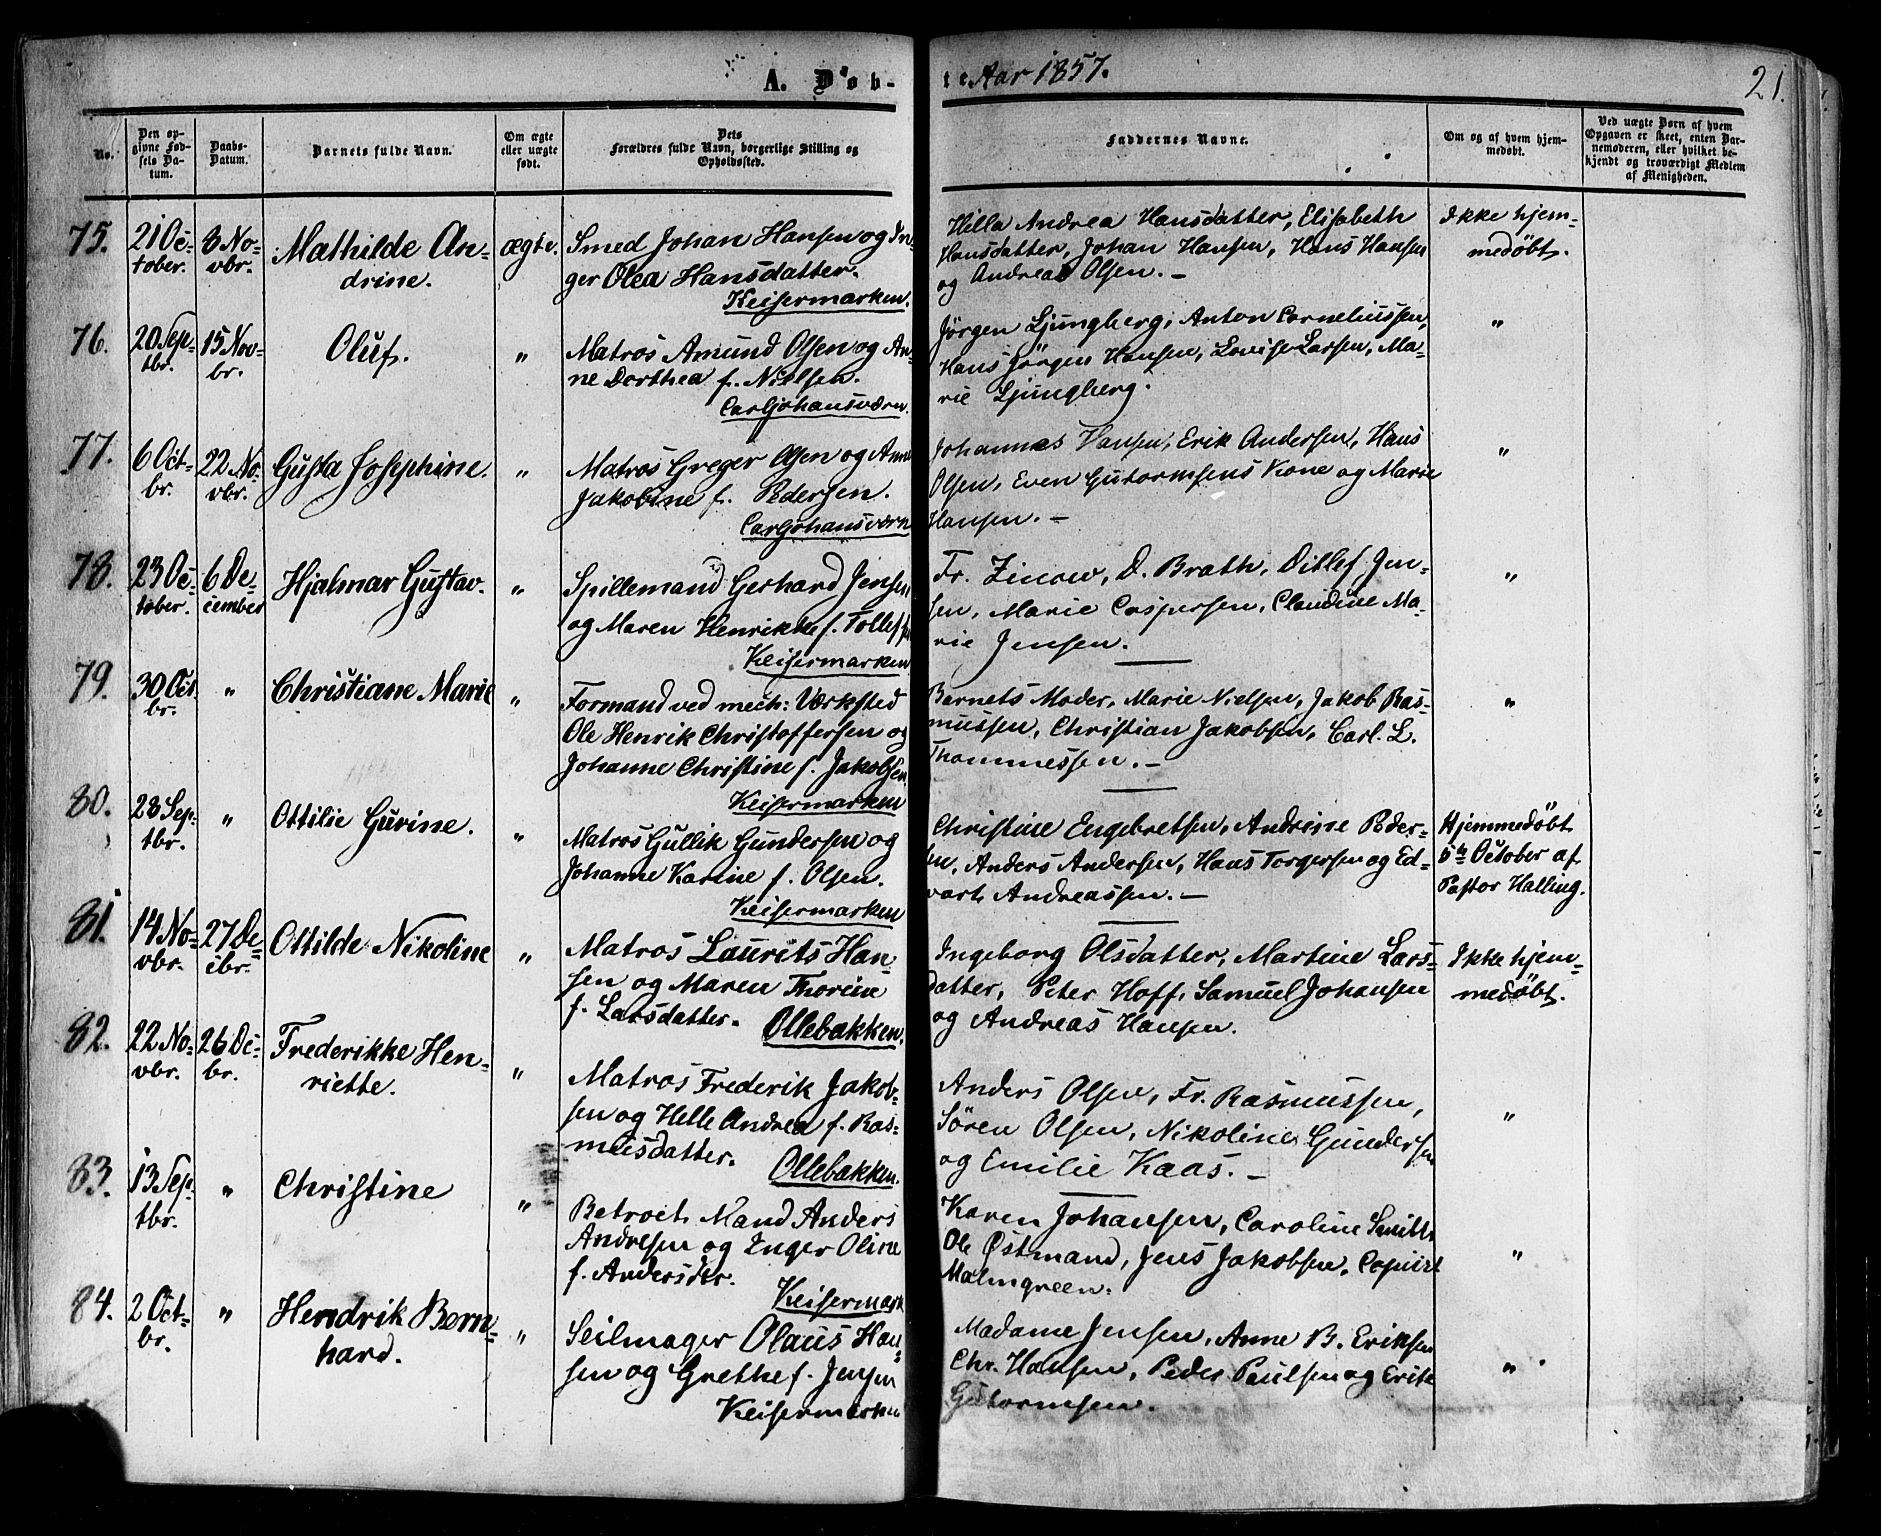 A. Døb-
te Aar 1857.
21.
No.
Den op-
givne Fød-
sels Da-
tum.
Daabs-
Datum.
Barnets fulde Navn.
Om ægte
eller uægte
født.
Dets
Forældres fulde Navn, borgerlige Stilling og
Opholdssted.
Faddernes Navne.
Om og af hvem hjem-
medøbt.
Ved uægte Børn af hvem
Opgaven er skeet, enten Bar-
nemoderen, eller hvilket be-
kjendt og troværdigt Medlem
af Menigheden.
75.
21 Oc-
tober.
8 No-
vbr.
Mathilde An-
drine.
ægte.
Smed Johan Hansen og In-
ger Olea Hansdatter.
Keisermarken.
Hilla Andrea Hansdatter, Elisabeth
Hansdatter, Johan Hansen, Hans Hansen
og Andreas Olsen. –
Ikke hjem-
medøbt.
76.
20 Sep-
tbr.
15 Nov-
br.
Oluf.
"
Matros Amund Olsen og An-
ne Dorthea f. Nielsen.
Carljohansværn.
Jørgen Ljungberg, Anton Corneliussen,
Hans Jørgen Hansen, Lovise Larsen, Ma-
rie Ljungberg.
"
77.
6 Oct-
br.
22 No-
vbr.
Gusta Josephine.
"
Matros Greger Olsen og Anne
Jakobine f. Pedersen.
Carljohansværn
Johannes Hansen, Erik Andersen, Hans
Olsen, Even Gutormsens Kone og Marie
Hansen. –
"
78.
23 Oc-
tober.
6 De-
cember
Hjalmar Gustav.
"
Spillemand Gerhard Jensen
og Maren Henrikke f. Tollefsen
Keisermarken
Fr. Zinow, D. Brath, Ditlef Jen-
sen, Marie Caspersen, Claudine Ma-
rie Jensen.
"
79.
30 Oct
br.
"
Christiane Marie
"
Formand ved mech: Værksted
Ole Henrik Christoffersen og
Johanne Christine f. Jakobsen
Keisermarken
Barnets Moder, Marie Nielsen, Jakob Ras-
mussen, Christian Jakobsen, Carl. L.
Thommessen. –
"
80.
28 Sep-
tbr.
"
Ottilie Gurine.
"
Matros Gullik Gundersen og
Johanne Karine f. Olsen.
Keisermarken
Christine Engebretsen, Andrine Peder-
sen, Anders Andersen, Hans Torgersen og Ed-
vart Andreassen. –
Hjemmedøbt
5te October af
Pastor Halling.
81.
14 No-
vbr.
27 De-
cbr.
Ottilde Nikoline
"
Matros Laurits Han-
sen og Maren Thorine
f. Larsdatter. Ollebakken.
Ingeborg Olsdatter, Martine Lars-
datter, Peter Hoff, Samuel Johansen
og Andreas Hansen.
Ikke hjem-
medøbt.
82.
22 No-
vbr.
26 De-
br.
Frederikke Hen-
riette.
"
Matros Frederik Jakob-
sen og Helle Andrea f. Ras-
musdatter.
Ollebakken.
Anders Olsen, Fr. Rasmussen,
Søren Olsen, Nikoline Gundersen
og Emilie Kaas. –
"
83.
13 Sep-
tbr.
"
Christine
"
Betroet Mand Anders
Andresen og Inger Oline
f. Andersdtr.
Keisermark
Karen Johansen, Caroline Smith
Ole Østmand, Jens Jakobsen, Copiist
Malmgreen.
"
84.
2 Oct-
br.
"
Hendrik Bern-
hard.
"
Seilmager Olaus Han-
sen og Grethe f. Jensen
Keisermarken
Madame Jensen, Anne B. Eriksen
Chr. Hansen, Peder Paulsen og Erik
Gutormsen.
"